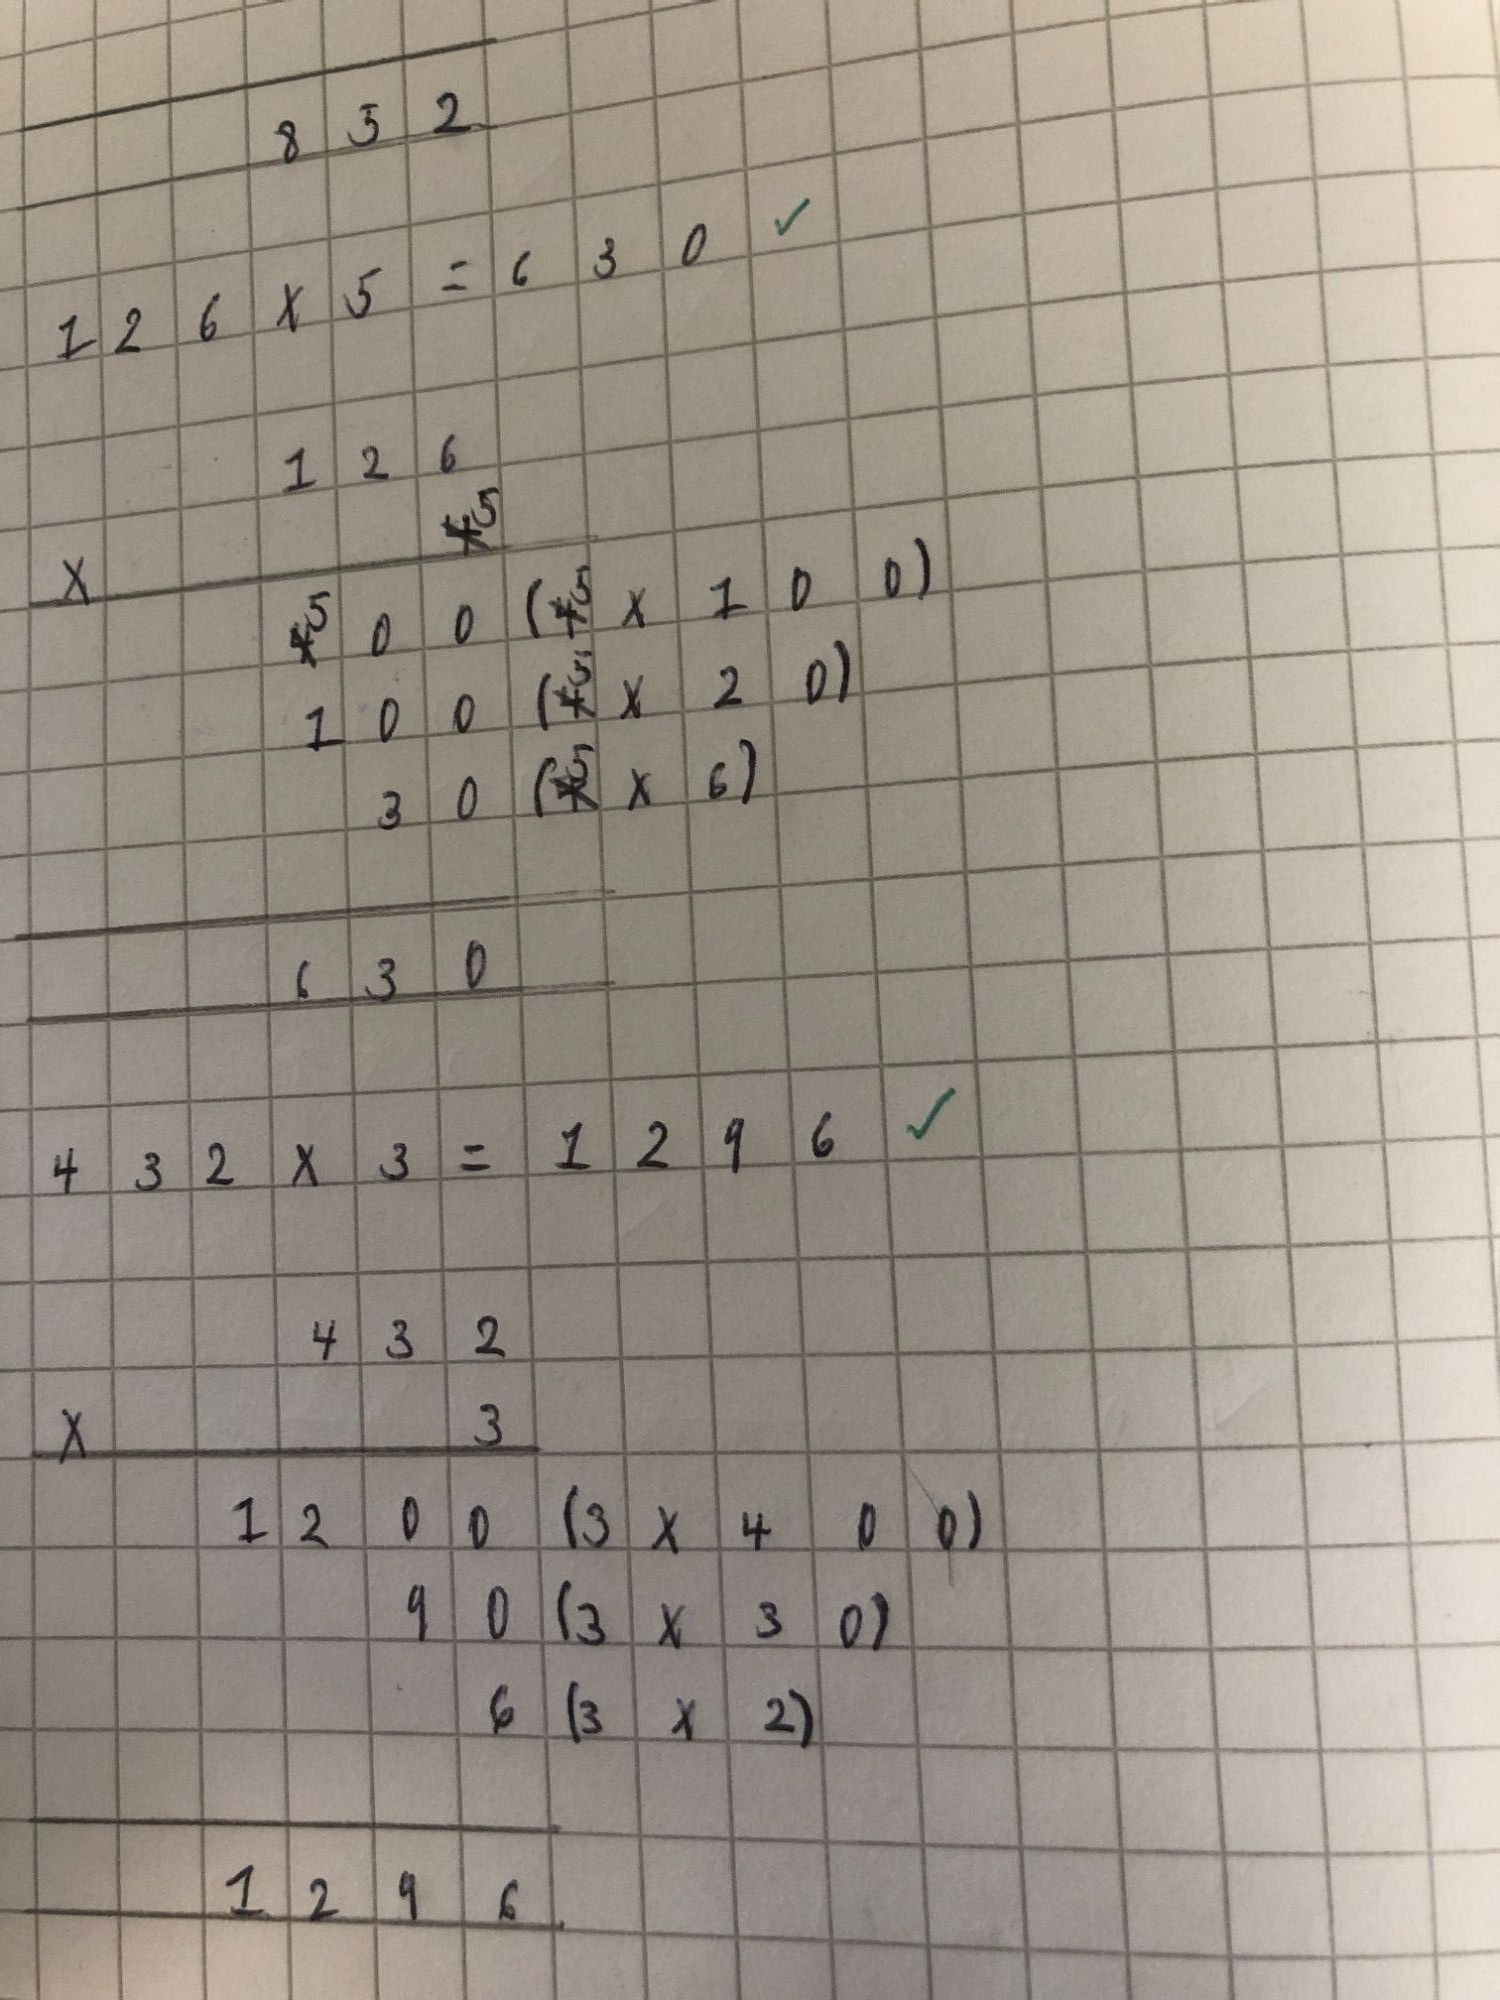 852
126 x 5 = 630 ✓
126
x 5
500 (5 x 100)
100 (5 x 20)
30 (5 x 6)
630
432 x 3 = 1296 ✓
432
x 3
1200 (3 x 400)
90 (3 x 30)
6 (3 x 2)
1296